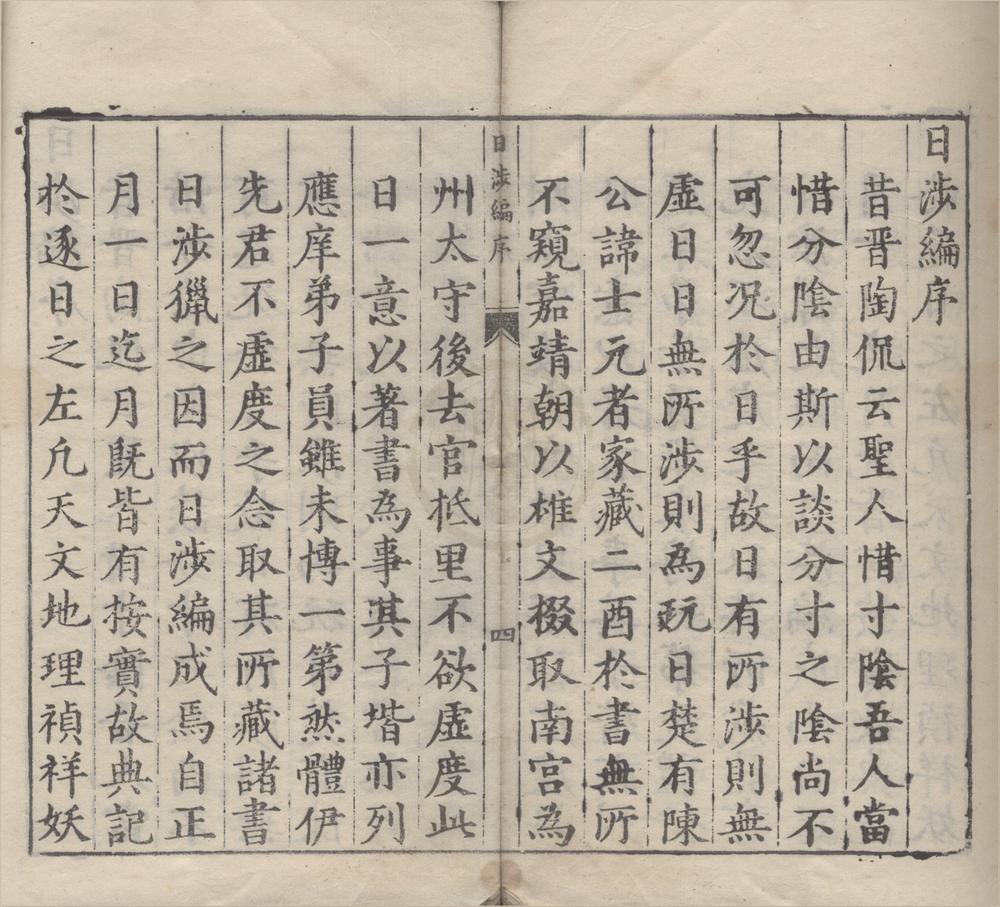 日涉編序
昔晋陶侃云聖人惜寸陰吾人當
惜分陰由斯以談分寸之陰尚不
可忽况於日乎故日有所涉則無
虛日日無所涉則為玩日楚有陳
公諱士元者家藏二酉於書無所
不窺嘉靖朝以椎文掇取南宫為
日涉編序
四
州太守後去官抵里不欲虛度此
日一意以著書為事其子堦亦列
應庠弟子員雖未博一第然體伊
先君不虛度之念取其所藏諸書
日涉獵之因而日涉編成焉自正
月一日迄月既皆有按實故典記
於逐日之左凡天文地理禎祥妖